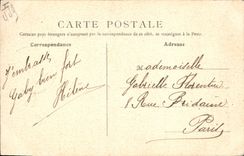 CARTE POSTALE
Certains pays étrangers n'acceptent pas la correspondance de ce côté, se renseigner à la Poste.
Correspondance
Adresse
J'embrasse
Gaby bien fort
Hélène
Mademoiselle
Gabrielle Florentin
8 Rue
Paris